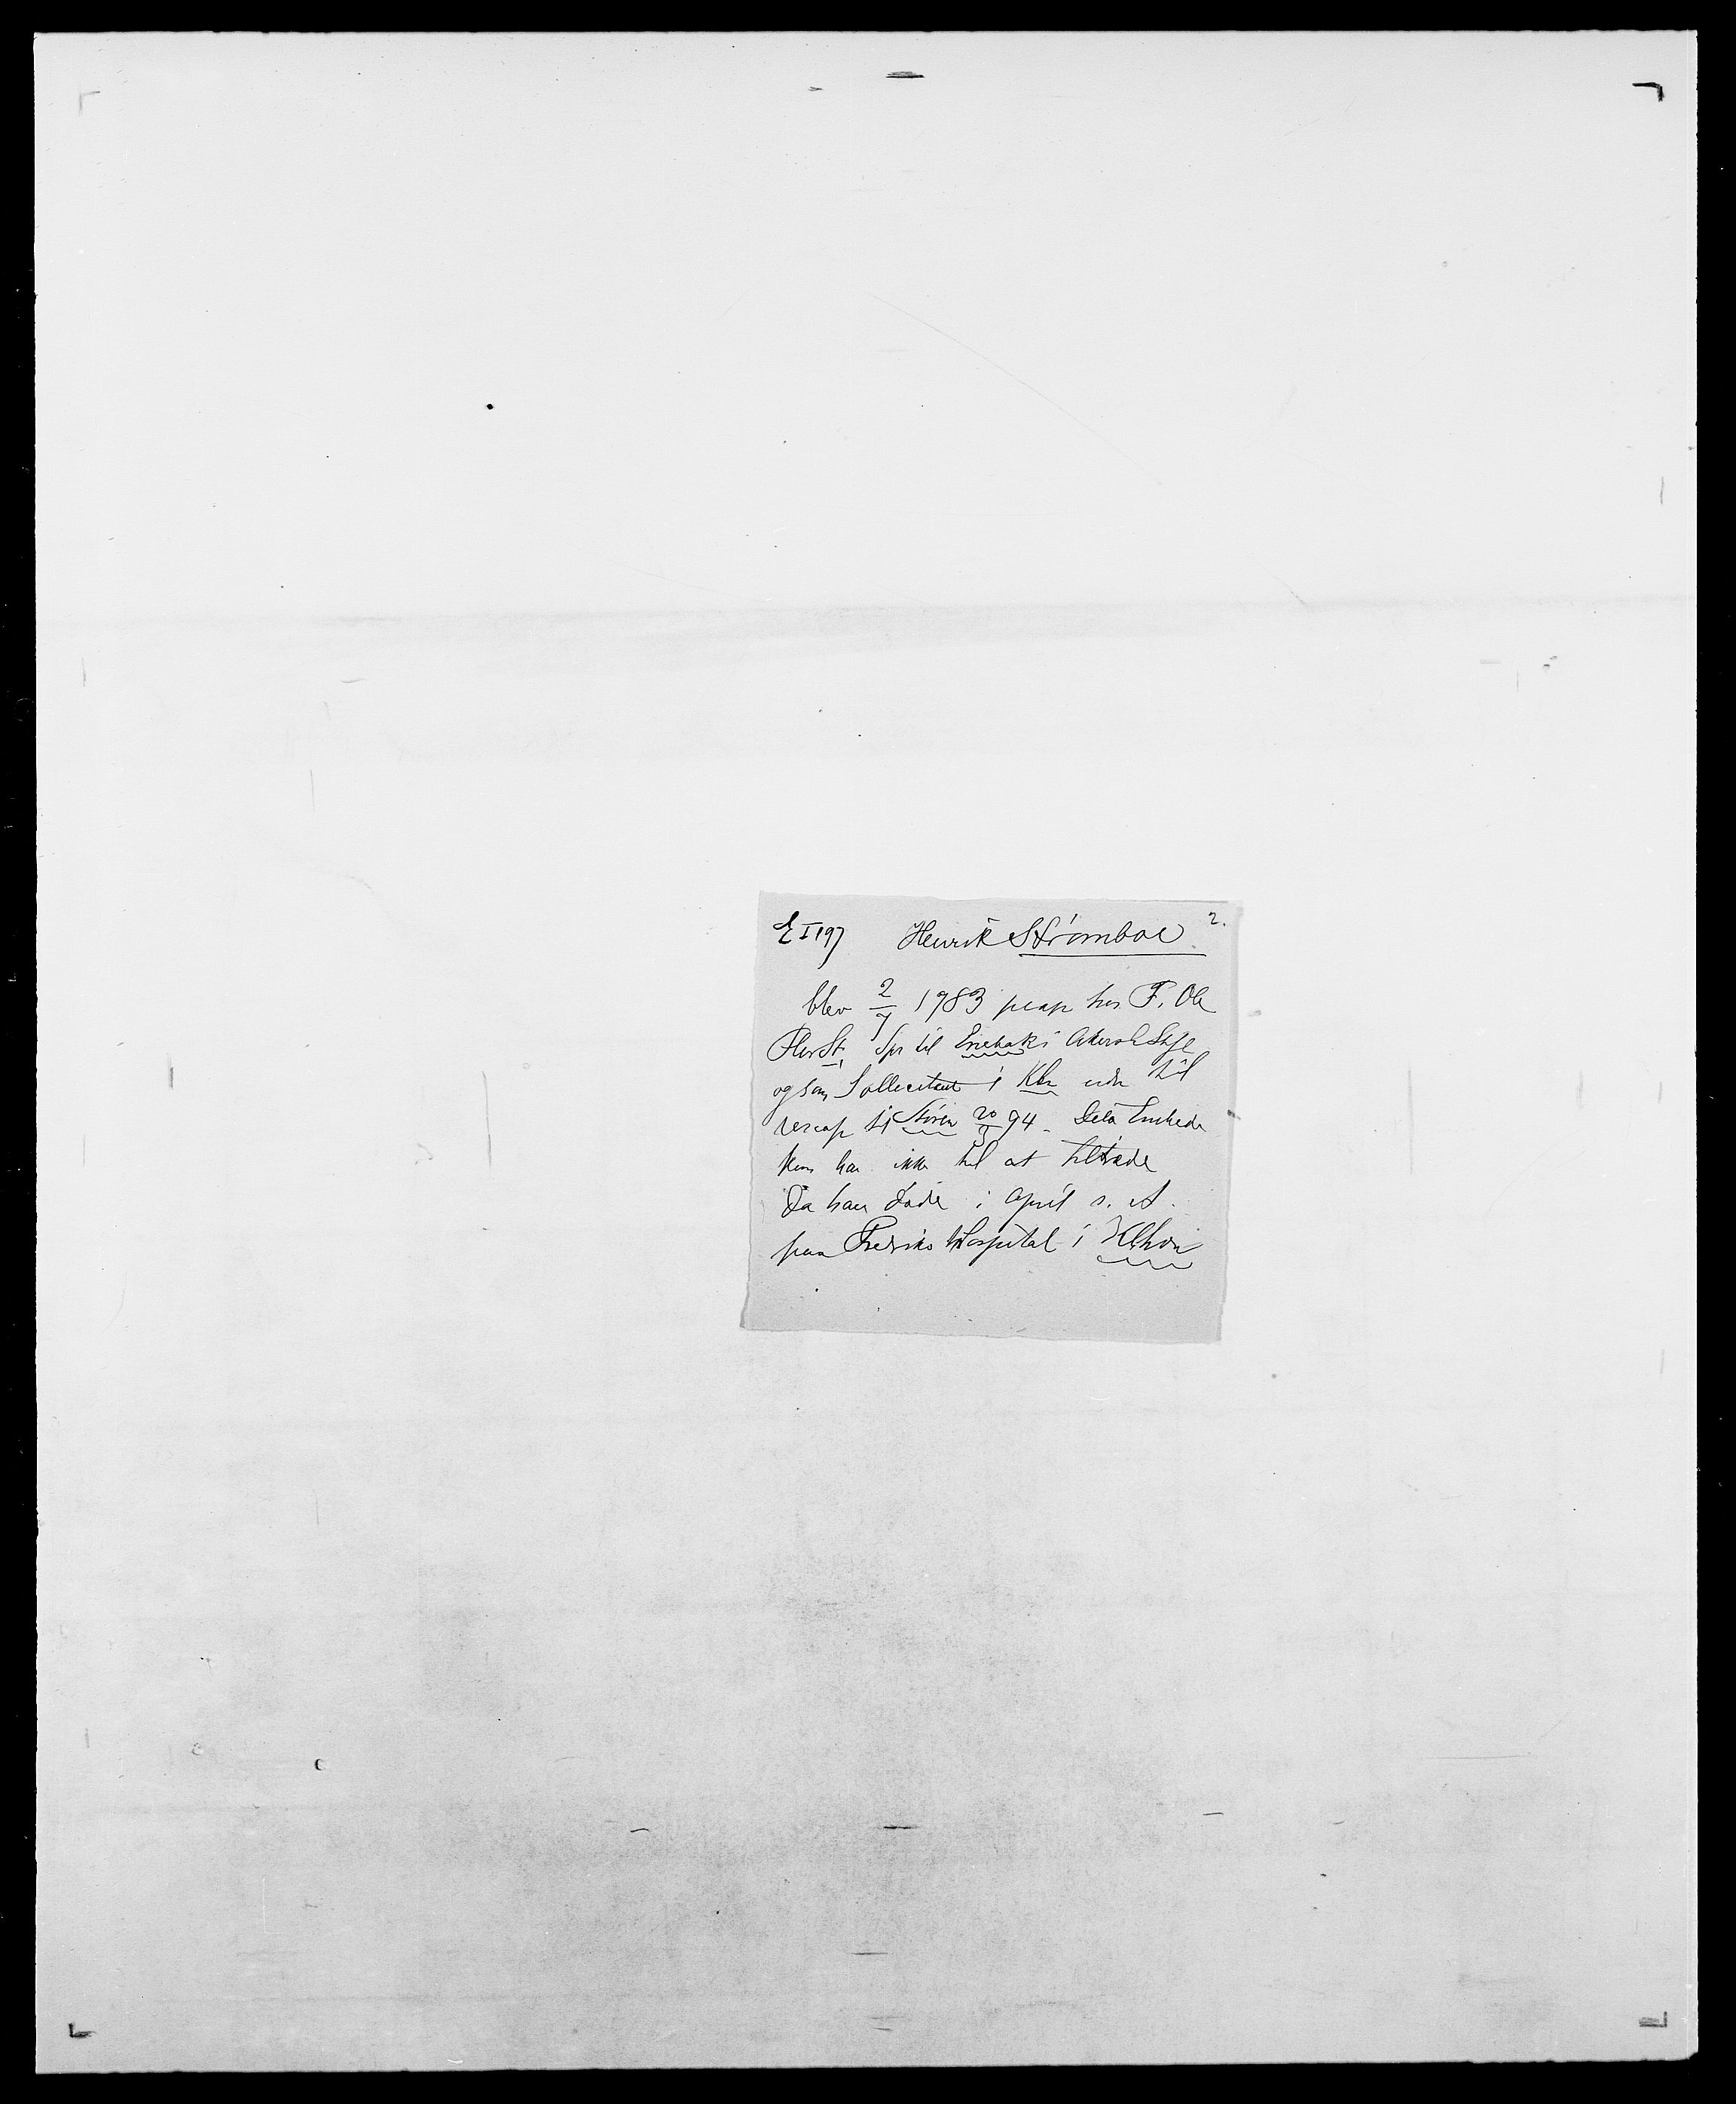 E I 197 Henrik Strömboe 2.
blev 2/7 1783 pcap hos F. Ole
St. Spr til Enebak i Akersh Stift
og som Sollicitant i Kbh
rescap til Støren 20/3 94. Dette Embede
kom han ikke til at tiltræde
Da han døde i April s. A.
paa Fredriks Hospital i Kbhvn